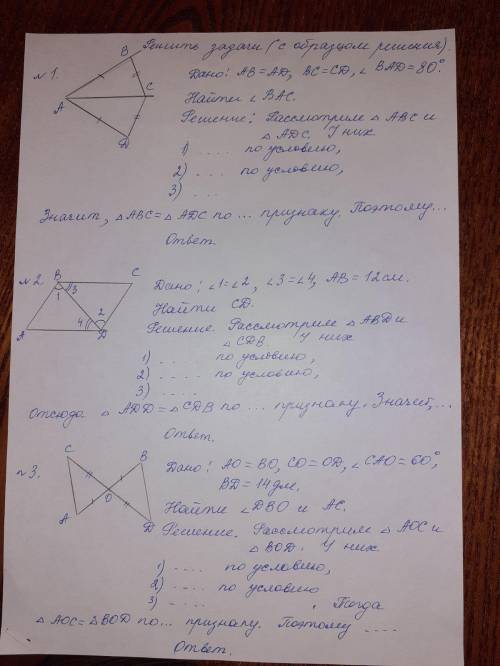 Решить задачи (с образцом решения).
№1.
B
A
C
D
Дано: AB=AD, BC=CD, ∠BAD=80°
Найти ∠BAC.
Решение: Рассмотрим △ABC и
△ADC. У них
1) .... по условию,
2) .... по условию,
3) ....
Значит, △ABC=△ADC по ... признаку. Поэтому...
Ответ.
№2
B
C
3
1
2
4
A
D
Дано: ∠1=∠2, ∠3=∠4, AB=12см.
Найти CD.
Решение. Рассмотрим △ABD и
△CDB. У них
1) .... по условию,
2) .... по условию,
3) ....
Отсюда △ADD=△CDB по ... признаку. Значит,...
Ответ.
№3.
C
B
O
A
D
Дано: AO=BO, CO=OD, ∠CAO=60°,
BD=14дм.
Найти ∠DBO и AC.
Решение. Рассмотрим △AOC и
△BOD. У них
1) .... по условию,
2) .... по условию
3) .... . Тогда
△AOC=△BOD по... признаку. Поэтому ....
Ответ.